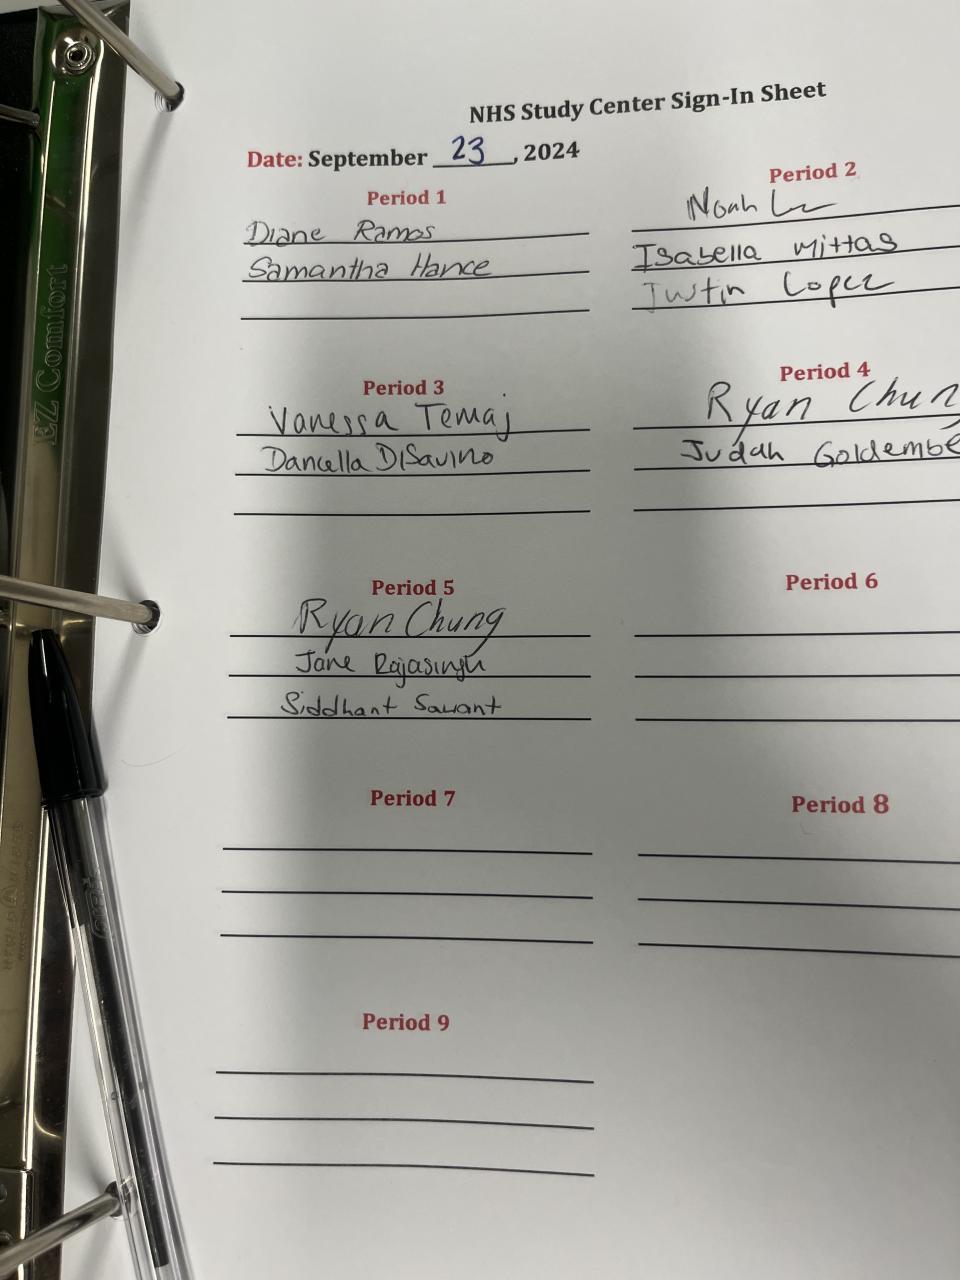 NHS Study Center Sign-In Sheet
Date: September 23, 2024
Period 1
Diane Ramos
Samantha Hance
Period 2
Noah
Isabella Mittas
Justin Lopez
Period 3
Vanessa Temaj
DiSavino
Period 4
Ryan Chun
Judah Goldembe
Period 5
Ryan Chung
Jane Rajasingh
Siddhant Sawant
Period 6
Period 7
Period 8
Period 9
EZ Comfort